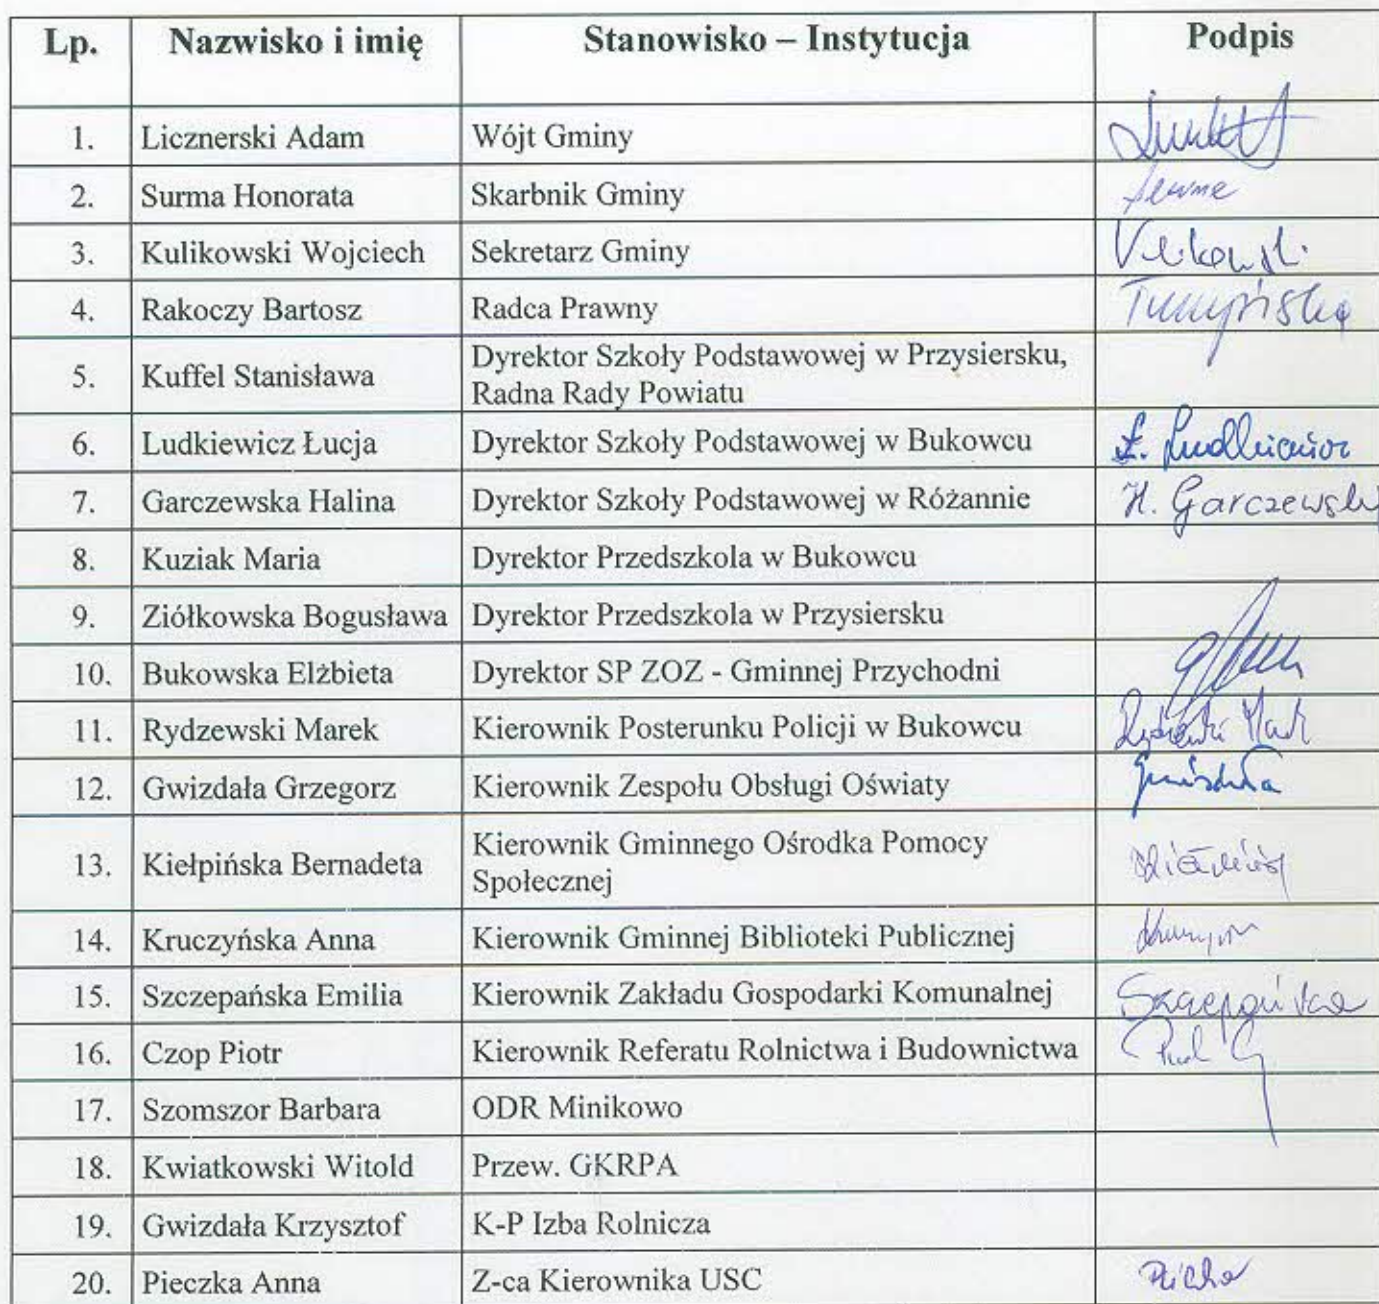 Lp. Nazwisko i imię Stanowisko – Instytucja Podpis
1. Licznerski Adam Wójt Gminy
2. Surma Honorata Skarbnik Gminy
3. Kulikowski Wojciech Sekretarz Gminy
4. Rakoczy Bartosz Radca Prawny
5. Kuffel Stanisława Dyrektor Szkoły Podstawowej w Przysiersku,
Radna Rady Powiatu
6. Ludkiewicz Łucja Dyrektor Szkoły Podstawowej w Bukowcu Ł.
7. Garczewska Halina Dyrektor Szkoły Podstawowej w Różannie H. Garczewska
8. Kuziak Maria Dyrektor Przedszkola w Bukowcu
9. Ziółkowska Bogusława Dyrektor Przedszkola w Przysiersku
10. Bukowska Elżbieta Dyrektor SP ZOZ - Gminnej Przychodni
11. Rydzewski Marek Kierownik Posterunku Policji w Bukowcu
12. Gwizdała Grzegorz Kierownik Zespołu Obsługi Oświaty
13. Kiełpińska Bernadeta Kierownik Gminnego Ośrodka Pomocy
Społecznej
14. Kruczyńska Anna Kierownik Gminnej Biblioteki Publicznej
15. Szczepańska Emilia Kierownik Zakładu Gospodarki Komunalnej Szczepańska
16. Czop Piotr Kierownik Referatu Rolnictwa i Budownictwa
17. Szomszor Barbara ODR Minikowo
18. Kwiatkowski Witold Przew. GKRPA
19. Gwizdała Krzysztof K-P Izba Rolnicza
20. Pieczka Anna Z-ca Kierownika USC